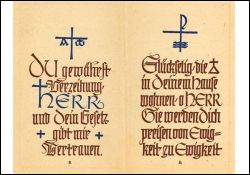 DU gewährst
Verzeihung
HERR
und dein Gesetz
gibt mir
Vertrauen.
Glückselig, die
in deinem Hause
wohnen, o HERR
Sie werden dich
preisen von Ewig-
keit zu Ewigkeit